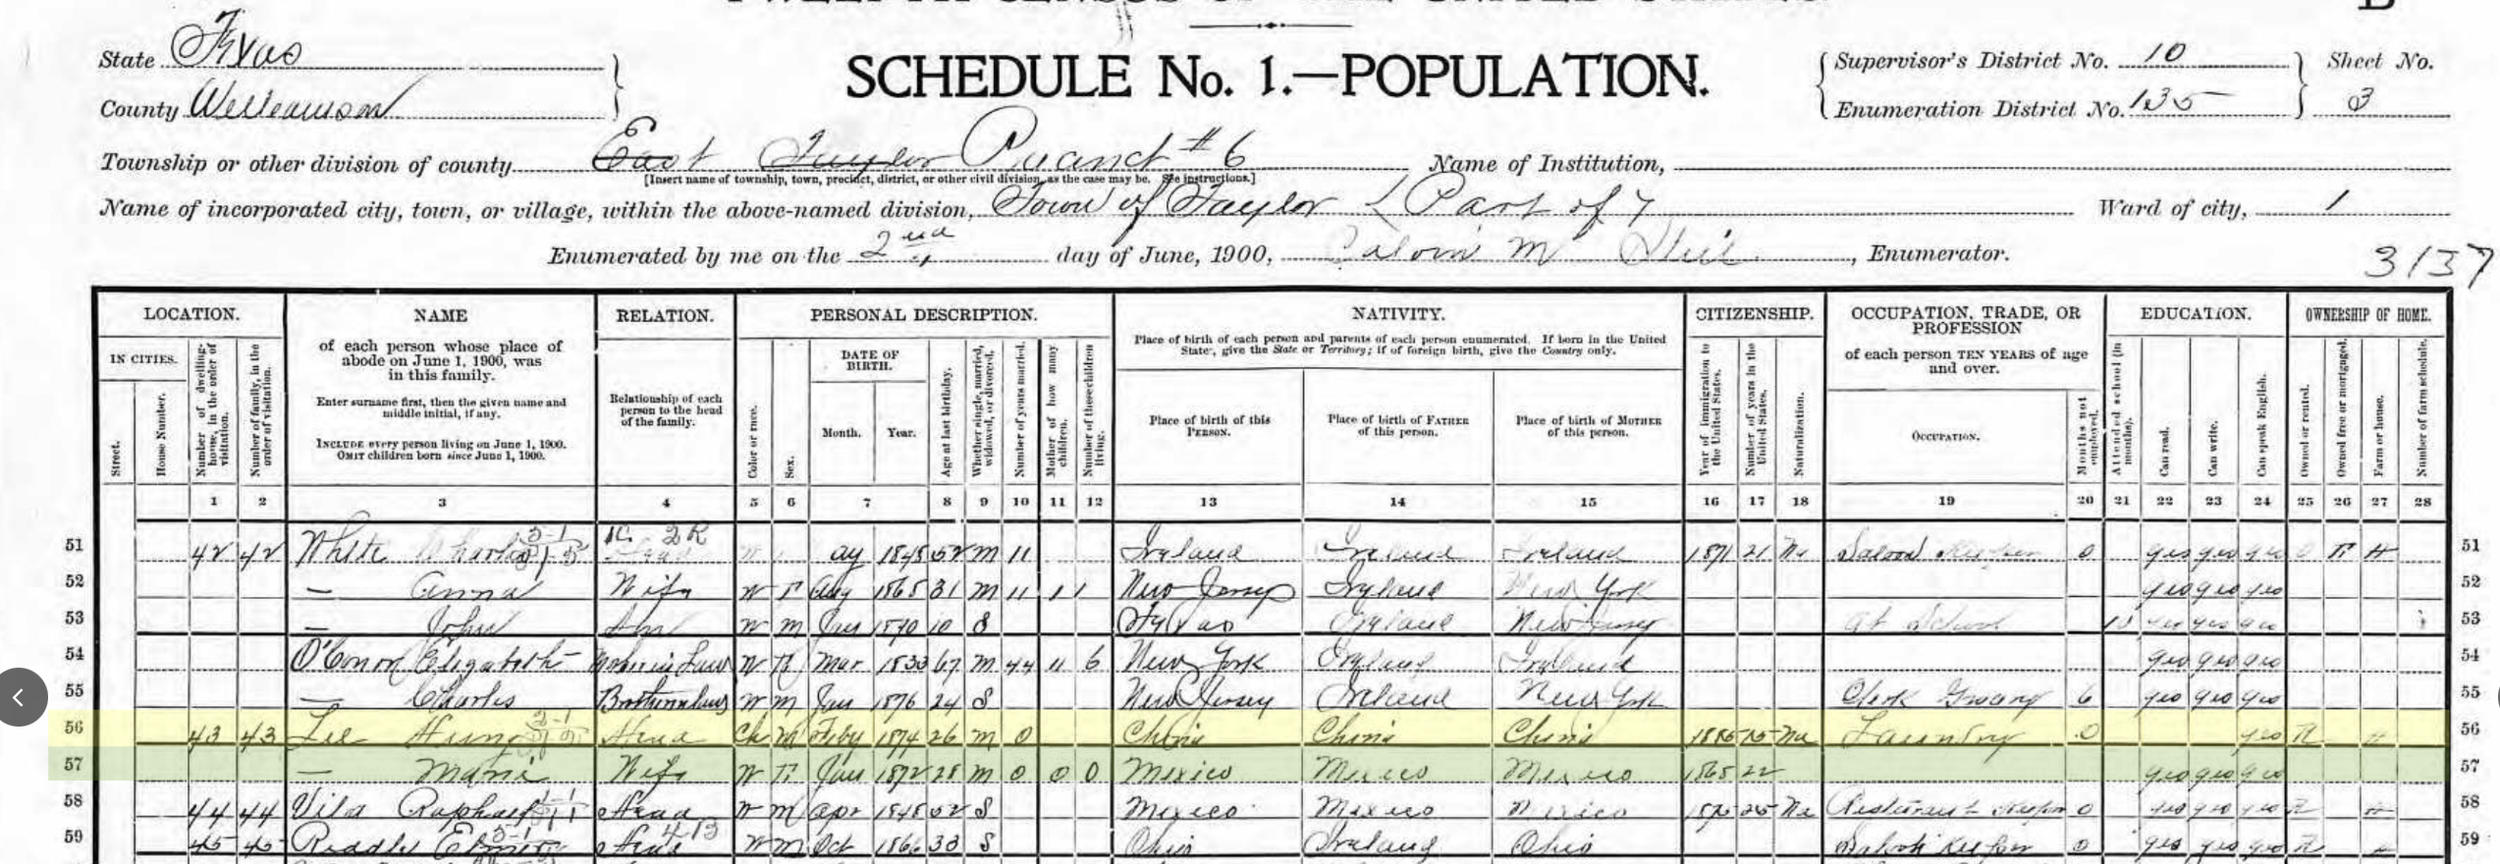 TWELFTH CENSUS OF THE UNITED STATES.
B
State Texas
County Williamson
SCHEDULE No. 1.—POPULATION.
Supervisor's District No. 10
Enumeration District No. 135
Sheet No.
3
Township or other division of county East Taylor Precinct #6
Name of Institution,
[Insert name of township, town, precinct, district, or other civil division, as the case may be. See instructions.]
Name of incorporated city, town, or village, within the above-named division, Town of Taylor (Part of 7
Ward of city, 1
Enumerated by me on the 2nd day of June, 1900, Calvin M , Enumerator.
3137
LOCATION.
IN CITIES.
Street.
House Number.
Number of dwelling-house, in the order of visitation.
Number of family, in the order of visitation.
NAME
of each person whose place of
abode on June 1, 1900, was
in this family.
Enter surname first, then the given name and
middle initial, if any.
INCLUDE every person living on June 1, 1900.
OMIT children born since June 1, 1900.
RELATION.
Relationship of each
person to the head
of the family.
PERSONAL DESCRIPTION.
Color or race.
Sex.
DATE OF
BIRTH.
Month. Year.
Age at last birthday.
Whether single, married, widowed, or divorced.
Number of years married.
Mother of how many children.
Number of these children living.
NATIVITY.
Place of birth of each person and parents of each person enumerated. If born in the United
States, give the State or Territory; if of foreign birth, give the Country only.
Place of birth of this
PERSON.
Place of birth of FATHER
of this person.
Place of birth of MOTHER
of this person.
CITIZENSHIP.
Year of immigration to the United States.
Number of years in the United States.
Naturalization.
OCCUPATION, TRADE, OR
PROFESSION
of each person TEN YEARS of age
and over.
OCCUPATION.
Months not employed.
EDUCATION.
Attended school (in months).
Can read.
Can write.
Can speak English.
OWNERSHIP OF HOME.
Owned or rented.
Owned free or mortgaged.
Farm or house.
Number of farm schedule.
1 2 3 4 5 6 7 8 9 10 11 12 13 14 15 16 17 18 19 20 21 22 23 24 25 26 27 28
51 42 42 White Charles Head 1848 52 M 11 Ireland Ireland Ireland 1871 21 Na Saloon Keeper 0 yes yes yes H 51
52 — Anna Wife W F Aug 1865 31 M 11 1 1 New Jersey Ireland New York yes yes yes 52
53 — John Son W M Jan 1890 10 S Texas Ireland New Jersey at School yes yes yes 53
54 O'Conor Elizabeth Mother in Law W F Mar 1833 67 M 44 11 6 New York Ireland Ireland yes yes yes 54
55 — Charles Brother in law W M Jan 1876 24 S New Jersey Ireland New York Clerk Grocery 6 yes yes yes 55
56 43 43 Lee Hung Head Ch M Feby 1874 26 M 0 China China China 1885 15 Na Laundry 0 yes R H 56
57 — Maria Wife W F Jan 1872 28 M 0 0 0 Mexico Mexico Mexico 22 yes yes yes 57
58 44 44 Vila Raphael Head W M Apr 1848 52 S Mexico Mexico Mexico 1875 25 Na Restaurant Keeper 0 yes yes yes R H 58
59 45 45 Head W M Oct 1866 33 S Ohio Ireland Ohio Saloon Keeper 0 yes yes yes R H 59